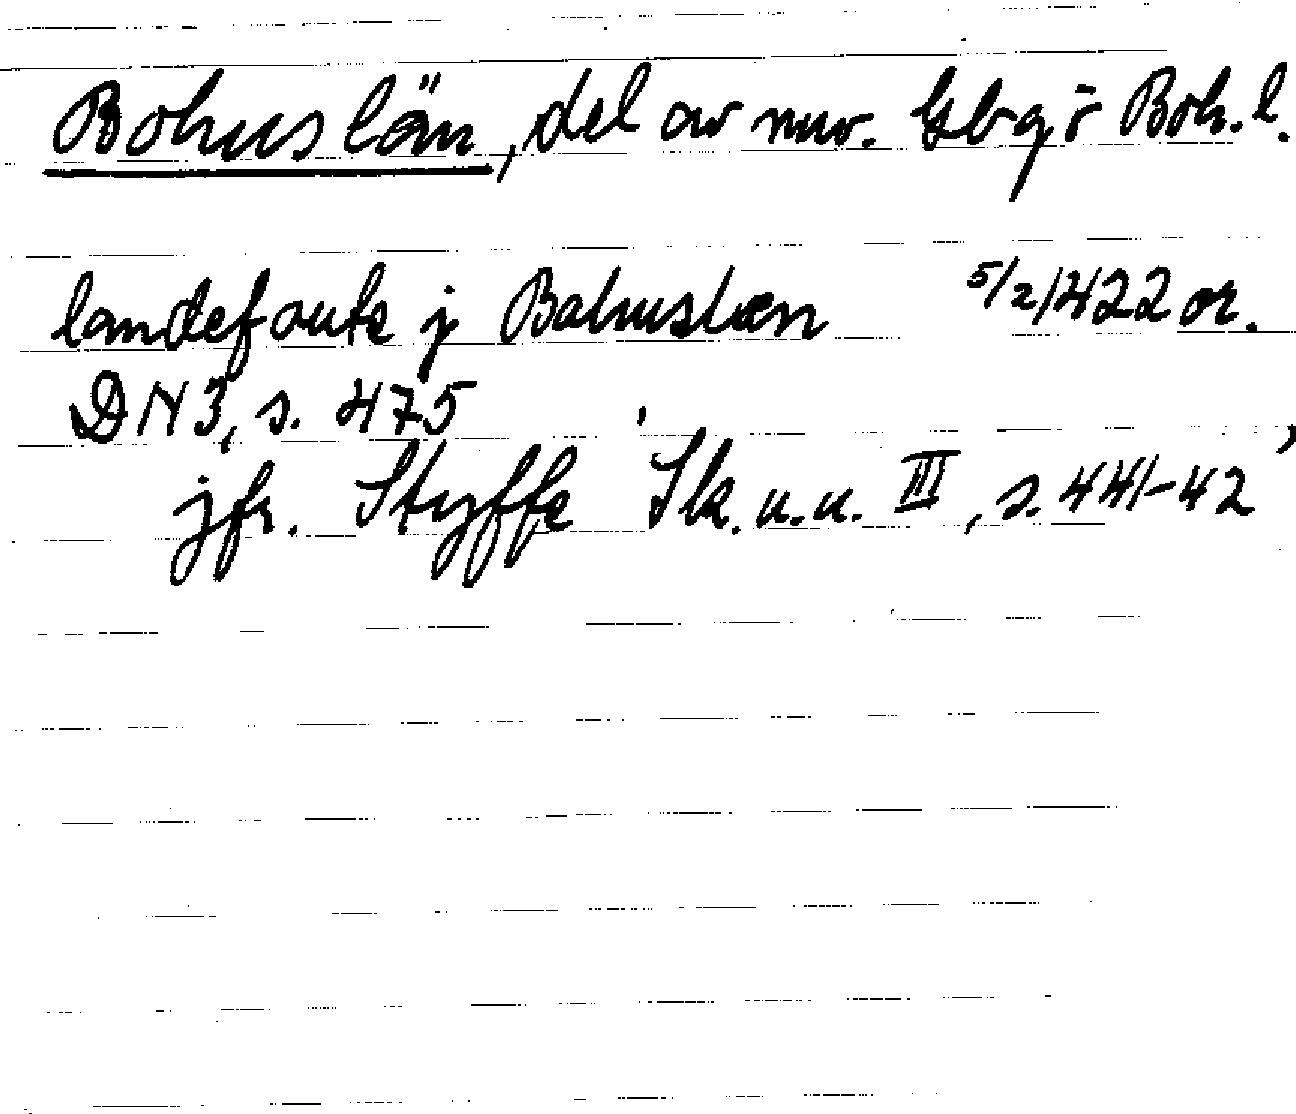 Bohuslän, del av nuv. Gbg o Boh. l.
landefoute j Bahuslæn 5/2 1422 or.
DN 3, s. 475
jfr. Styffe Sk. u. u. III, s. 441-42